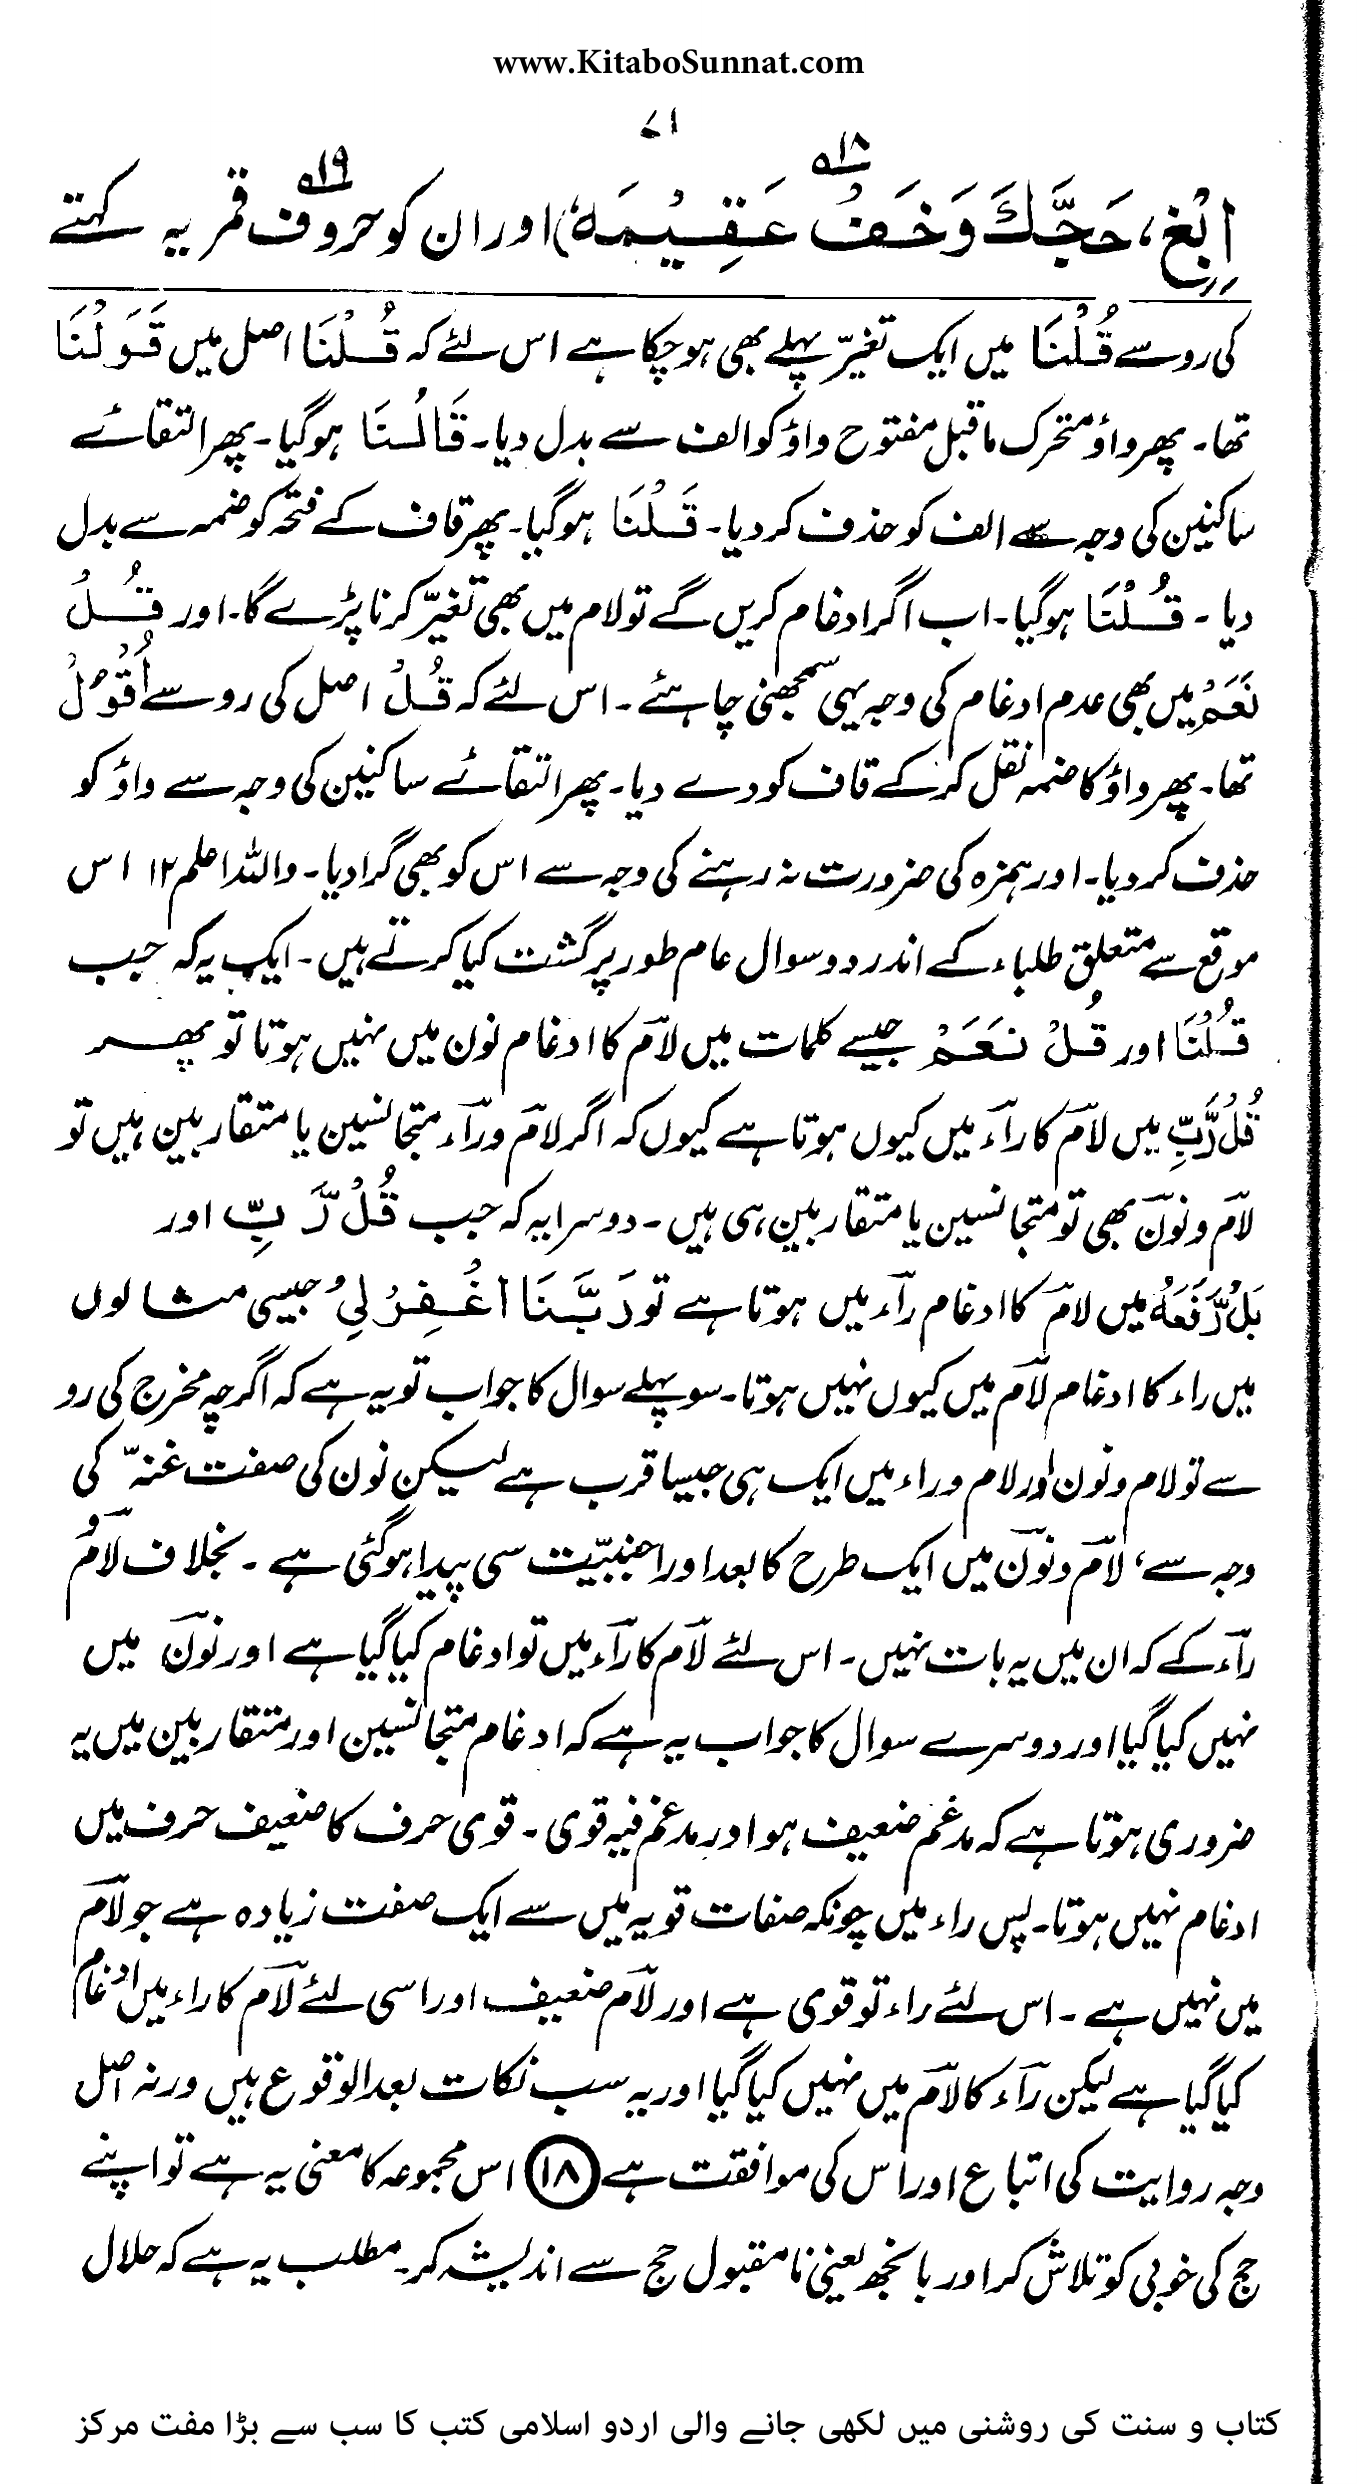 www.KitaboSunnat.com
۷۱
اِبْغِ، حَجَّكَ وَخَفْ عَقِيْمَهٗ)۱۸ اور ان کو حروف۱۹ قمریہ کہتے
کی رو سے قُلْنَا میں ایک تغیّر پہلے بھی ہوچکا ہے اس لئے کہ قُلْنَا اصل میں قَوَلْنَا
تھا۔ پھر واؤ متحرک ماقبل مفتوح واؤ کو الف سے بدل دیا۔ قَالْنَا ہوگیا۔ پھر التقائے
ساکنین کی وجہ سے الف کو حذف کردیا۔ قَلْنَا ہوگیا۔ پھر قاف کے فتحہ کو ضمہ سے بدل
دیا۔ قُلْنَا ہوگیا۔ اب اگر ادغام کریں گے تو لام میں بھی تغیّر کرنا پڑے گا۔ اور قُلْ
نَعَمْ میں بھی عدم ادغام کی وجہ یہی سمجھنی چاہئے۔ اس لئے کہ قُلْ اصل کی رو سے اُقْوُلْ
تھا۔ پھر واؤ کا ضمہ نقل کرکے قاف کو دے دیا۔ پھر التقائے ساکنین کی وجہ سے واؤ کو
حذف کردیا۔ اور ہمزہ کی ضرورت نہ رہنے کی وجہ سے اس کو بھی گرادیا۔ واللہ اعلم ۱۲ اس
موقع سے متعلق طلباء کے اندر دو سوال عام طور پر گشت کیا کرتے ہیں۔ ایک یہ کہ جب
قُلْنَا اور قُلْ نَعَمْ جیسے کلمات میں لآم کا ادغام نون میں نہیں ہوتا تو پھر
قُلْ رَّبِّ میں لآم کا رآء میں کیوں ہوتا ہے کیوں کہ اگر لآم ورآء متجانسین یا متقاربین ہیں تو
لآم ونوٓن بھی تو متجانسین یا متقاربین ہی ہیں۔ دوسرا یہ کہ جب قُلْ رَّبِّ اور
بَلْ رَّفَعَهُ میں لآم کا ادغام رآء میں ہوتا ہے تو رَبَّنَا اغْفِرْ لِيْ جیسی مثالوں
میں راء کا ادغام لآم میں کیوں نہیں ہوتا۔ سو پہلے سوال کا جواب تو یہ ہے کہ اگرچہ مخرج کی رو
سے تو لام ونون اور لام وراء میں ایک ہی جیسا قرب ہے لیکن نون کی صفت غنہّ کی
وجہ سے، لآم ونوٓن میں ایک طرح کا بعد اور اجنبیّت سی پیدا ہوگئی ہے۔ بخلاف لآم و
رآء کے کہ ان میں یہ بات نہیں۔ اس لئے لآم کا رآء میں تو ادغام کیا گیا ہے اور نوٓن میں
نہیں کیا گیا اور دوسرے سوال کا جواب یہ ہے کہ ادغام متجانسین اور متقاربین میں یہ
ضروری ہوتا ہے کہ مدغم ضعیف ہو اور مدغم فیہ قوی۔ قوی حرف کا ضعیف حرف میں
ادغام نہیں ہوتا۔ پس راء میں چونکہ صفات قویہ میں سے ایک صفت زیادہ ہے جو لآم
میں نہیں ہے۔ اس لئے راء تو قوی ہے اور لآم ضعیف اور اسی لئے لآم کا راء میں ادغام
کیا گیا ہے لیکن رآء کا لآم میں نہیں کیا گیا اور یہ سب نکات بعد الوقوع ہیں ورنہ اصل
وجہ روایت کی اتباع اور اس کی موافقت ہے ۱۸ اس مجموعہ کا معنی یہ ہے تو اپنے
حج کی خوبی کو تلاش کر اور بانجھ یعنی نامقبول حج سے اندیشہ کر۔ مطلب یہ ہے کہ حلال
کتاب و سنت کی روشنی میں لکھی جانے والی اردو اسلامی کتب کا سب سے بڑا مفت مرکز